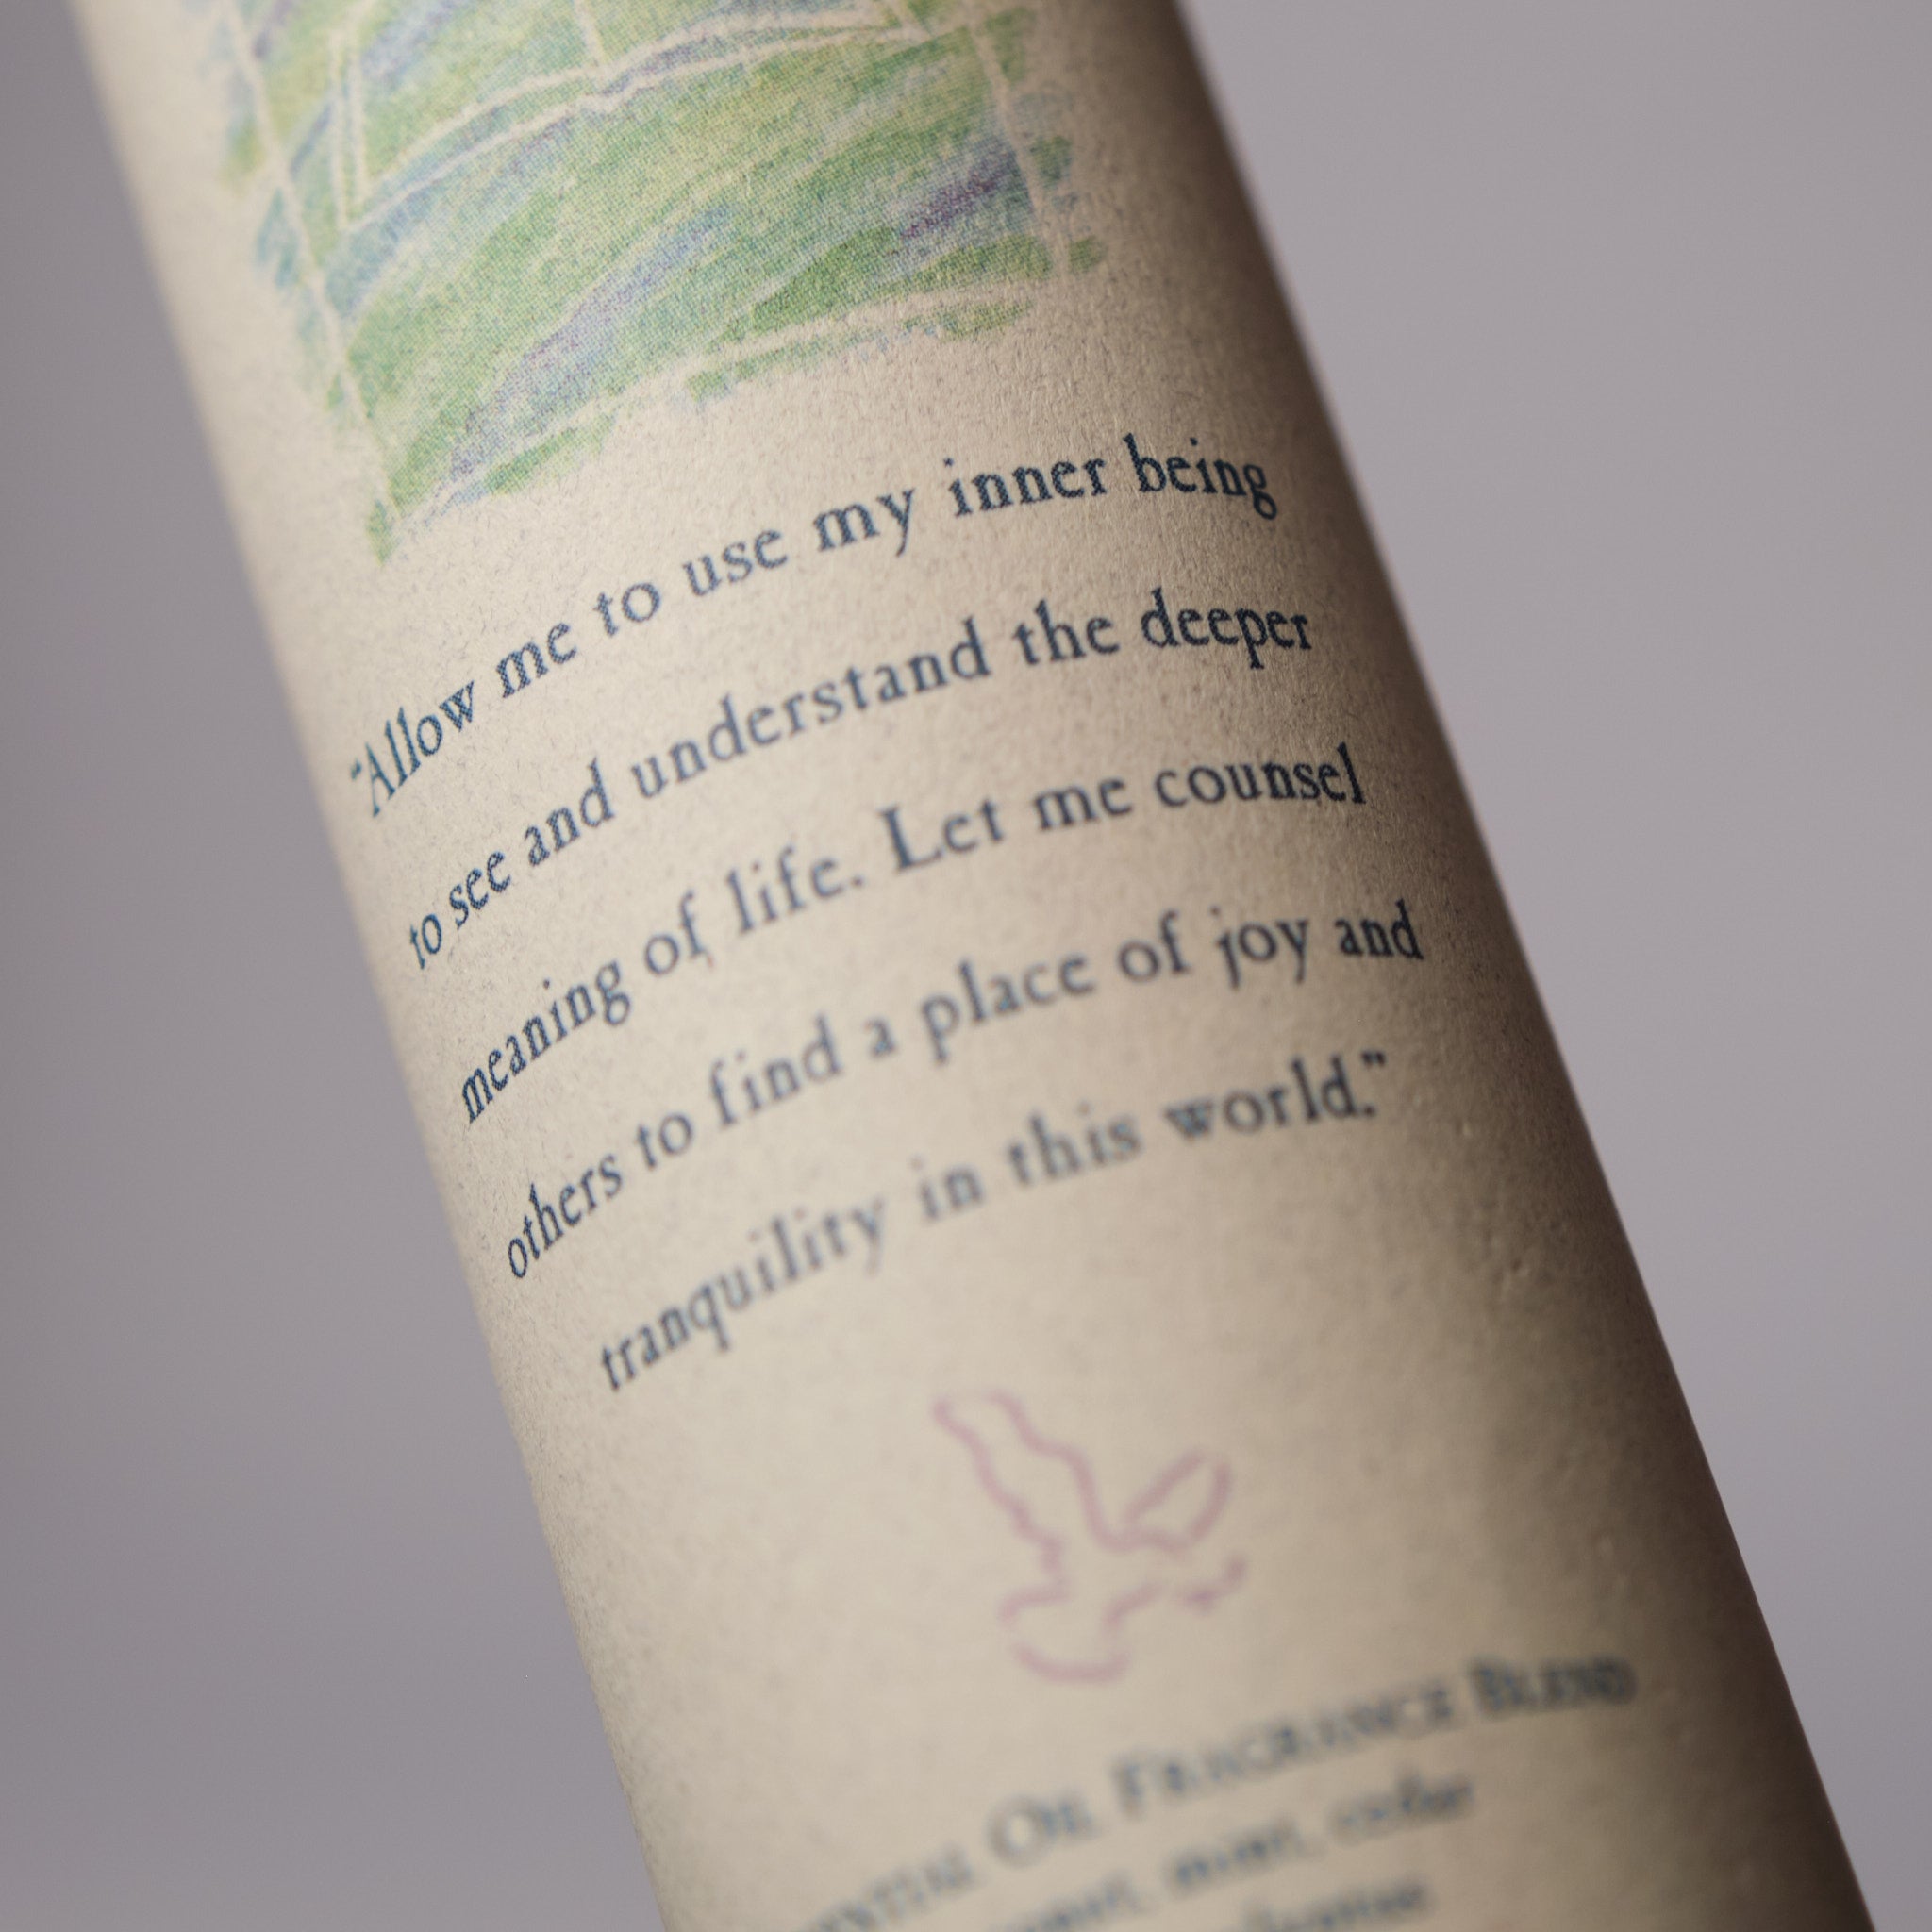 “Allow me to use my inner being
to see and understand the deeper
meaning of life. Let me counsel
others to find a place of joy and
tranquility in this world.”
Oil Fragrance Blend
mint, cedar